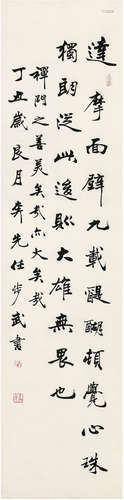 達摩面壁九載醍醐頓覺心珠
獨朗從此後則大雄無畏也
禪門之善美矣哉亦大矣哉
丁丑歲良月弈先任步武書